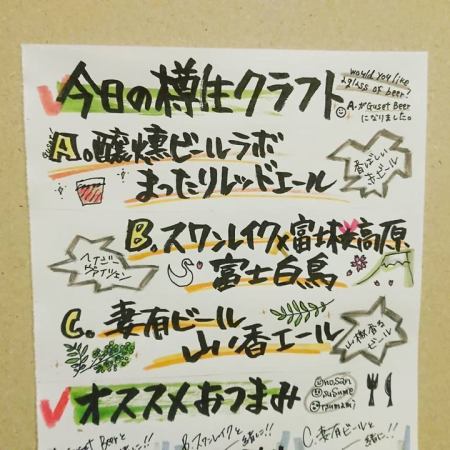 今日の樽生クラフト
would you like
a glass of beer?
A.がGuset Beer
になりました。
A。醸燻ビールラボ
まったりレッドエール
香ばしい
赤ビール
B.スワンレイク×富士桜高原
富士白鳥
ヘイジー
ヴァイツェン
C。妻有ビール
山の香エール
山椒香る
ビール
オススメおつまみ
no.San
suSume
tsumami
Guset Beerと
緒に!!
B.スワンレイクと
緒に!!
C.妻有ビールと
一緒に!!